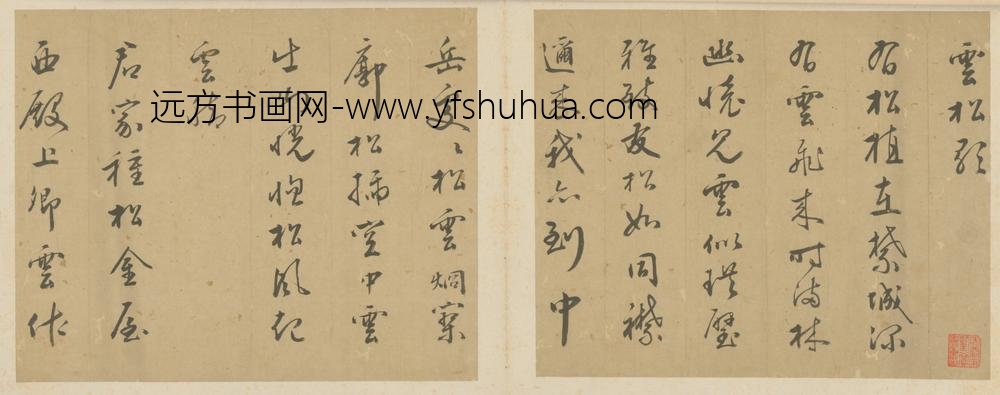 雲松歌
君松植在禁城深
有雲飛來时滿林
幽懷见雲似拱璧
雅致友松如同襟
邇来我亦到中
岳处〻松雲烟寥
廓松插空中雲
生
晓怳松風起
雲
君家種松金屋
西殿上卿雲作
远方书画网-www.yfshuhua.com